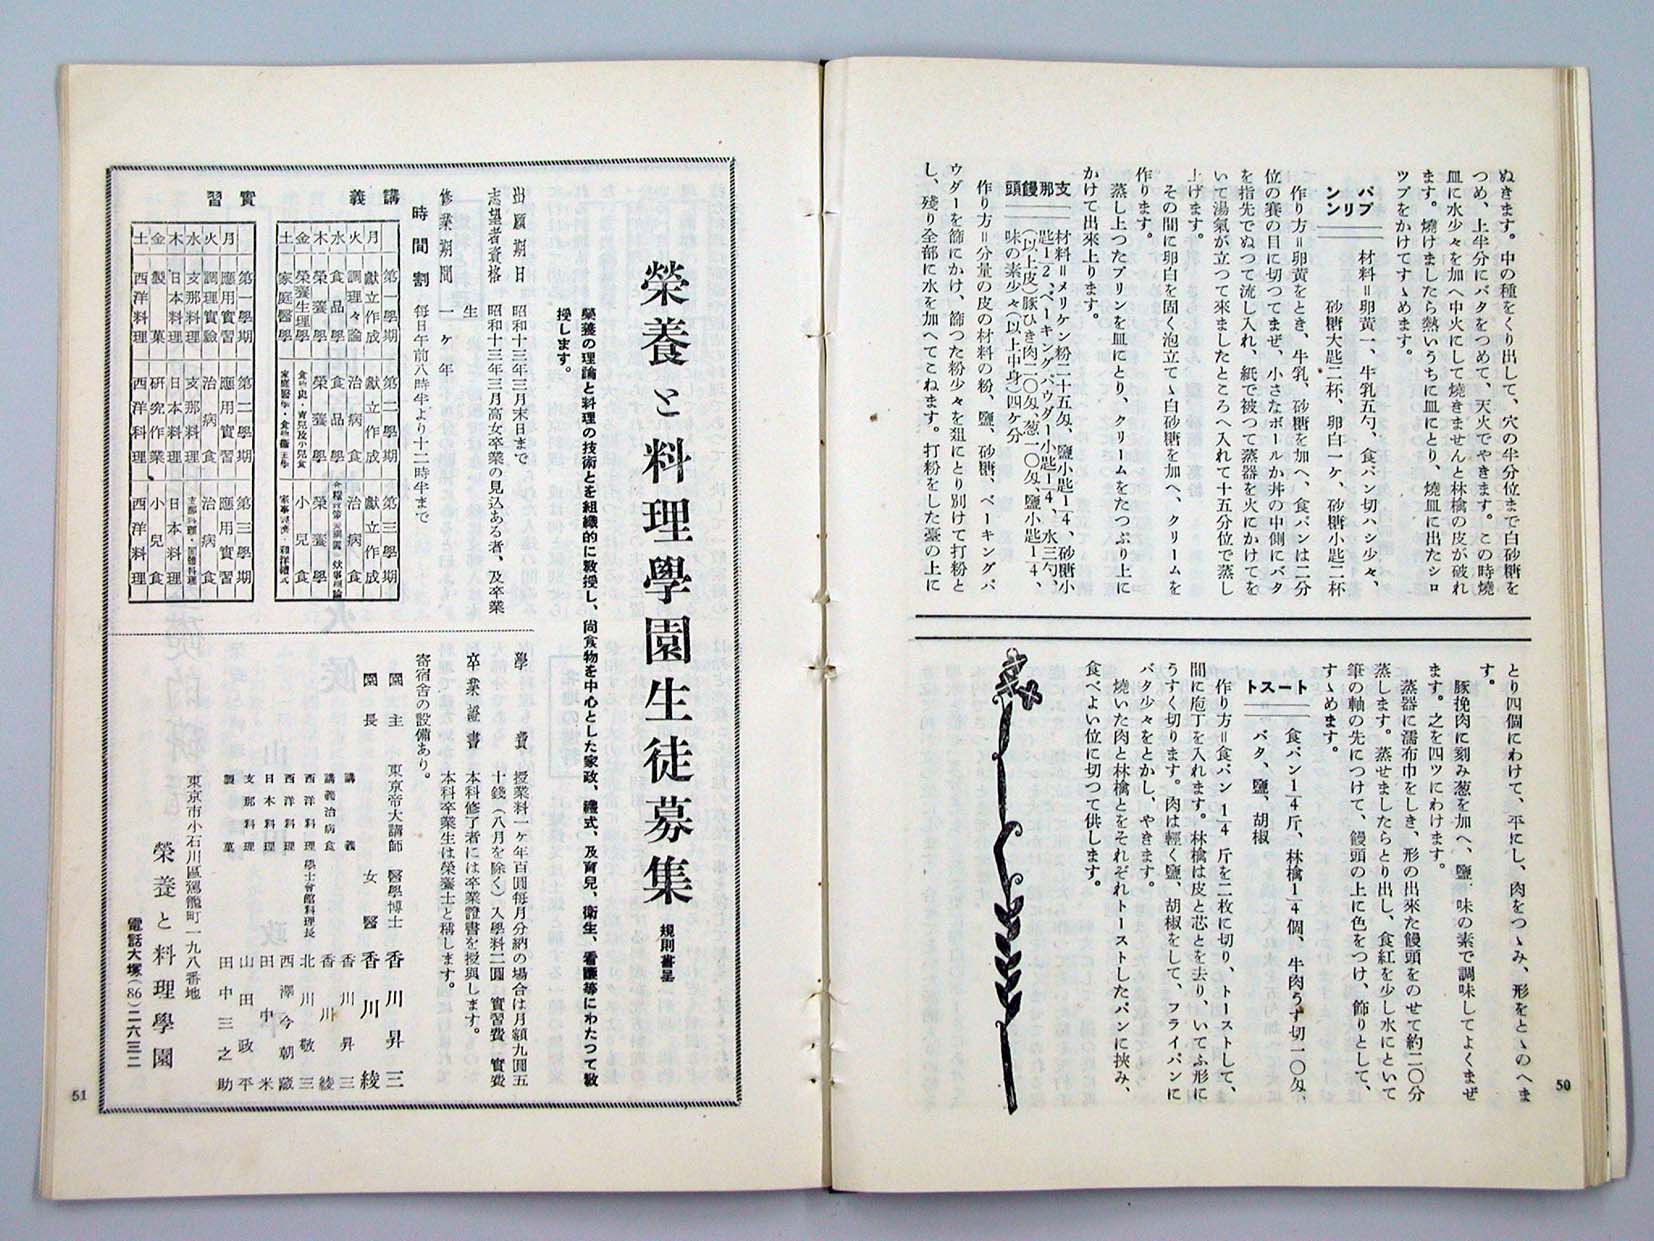 ぬきます。中の種をくり出して、穴の半分位まで白砂糖を
つめ、上半分にバタをつめて、天火でやきます。この時燒
皿に水少々を加へ中火にして燒きませんと林檎の皮が破れ
ます。燒けましたら熱いうちに皿にとり、燒皿に出たシロ
ップをかけてすゝめます。
パンプリン
材料＝卵黄一、牛乳五勺、食パン切ハシ少々、
砂糖大匙二杯、卵白一ケ、砂糖小匙二杯
作り方＝卵黄をとき、牛乳、砂糖を加へ、食パンは二分
位の賽の目に切つてまぜ、小さなボールか丼の中側にバタ
を指先でぬつて流し入れ、紙で被つて蒸器を火にかけてを
いて湯氣が立つて來ましたところへ入れて十五分位で蒸し
上げます。
その間に卵白を固く泡立てゝ白砂糖を加へ、クリームを
作ります。
蒸し上つたプリンを皿にとり、クリームをたつぷり上に
かけて出來上ります。
支那饅頭
材料＝メリケン粉二十五匁、鹽小匙1/4、砂糖小
匙1/2、ベーキングパウダー小匙1/4、水三勺、
(以上皮)豚ひき肉二〇匁、葱一〇匁、鹽小匙1/4、
味の素少々(以上中身)四ケ分
作り方＝分量の皮の材料の粉、鹽、砂糖、ベーキングパ
ウダーを篩にかけ、篩つた粉少々を俎にとり別けて打粉と
し、殘り全部に水を加へてこねます。打粉をした臺の上に
とり四個にわけて、平にし、肉をつゝみ、形をとゝのへま
す。
豚挽肉に刻み葱を加へ、鹽、味の素で調味してよくまぜ
ます。之を四ツにわけます。
蒸器に濡布巾をしき、形の出來た饅頭をのせて約二〇分
蒸します。蒸せましたらとり出し、食紅を少し水にといて
筆の軸の先につけて、饅頭の上に色をつけ、飾りとして、
すゝめます。
トースト
食パン1/4斤、林檎1/4個、牛肉うす切一〇匁、
バタ、鹽、胡椒
作り方＝食パン1/4斤を二枚に切り、トーストして、
間に庖丁を入れます。林檎は皮と芯とを去り、いてふ形に
うすく切ります。肉は輕く鹽、胡椒をして、フライパンに
バタ少々をとかし、やきます。
燒いた肉と林檎とをそれぞれトーストしたパンに挟み、
食べよい位に切つて供します。
50
榮養と料理學園生徒募集
規則書呈
榮養の理論と料理の技術とを組織的に敎授し、尚食物を中心とした家政、禮式、及育兒、衛生、看護等にわたつて敎
授します。
出願期日 昭和十三年三月末日まで
志望者資格 昭和十三年三月高女卒業の見込ある者、及卒業
生
修業期間 一ケ年
時間割 每日午前八時半より十二時半まで
講義
第一學期 第二學期 第三學期
月 獻立作成 獻立作成 獻立作成
火 調理々論 治病食 治病食
水 食品學 食品學
木 榮養學 榮養學 榮養學
金 榮養生理學 小兒食
土 家庭醫學
實習
第一學期 第二學期 第三學期
月 應用實習 應用實習 應用實習
火 調理實驗 治病食 治病食
水 支那料理 支那料理
木 日本料理 日本料理 日本料理
金 製菓 研究作業 小兒食
土 西洋料理 西洋料理 西洋料理
學費 授業料一ケ年百圓每月分納の場合は月額九圓五
十錢(八月を除く)入學料二圓 實習費 實費
卒業證書 本科修了者には卒業證書を授與します。
本科卒業生は榮養士と稱します。
寄宿舍の設備あり。
園主 東京帝大講師 醫學博士 香川昇三
園長 女醫 香川綾
講義 香川昇三
講義治病食 香川綾
西洋料理 學士會館料理長 北川敬三
西洋料理 西澤今朝藏
日本料理 田中米
支那料理 山田政平
製菓 田中三之助
東京市小石川區駕籠町一九八番地
榮養と料理學園
電話大塚(86)二六三二
51